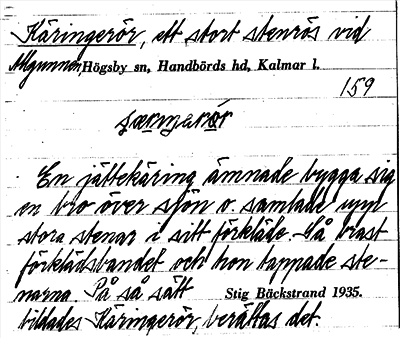 Käringerör, ett stort stenrös vid
Allgunnen, Högsby sn, Handbörds hd, Kalmar l.
159
En jättekäring ämnade bygga sig
en bro över sjön o. samlade upp
stora stenar i sitt förkläde. Då brast
förklädsbandet och hon tappade ste-
narna. På så sätt
Stig Bäckstrand 1935.
bildades Käringerör, berättas det.